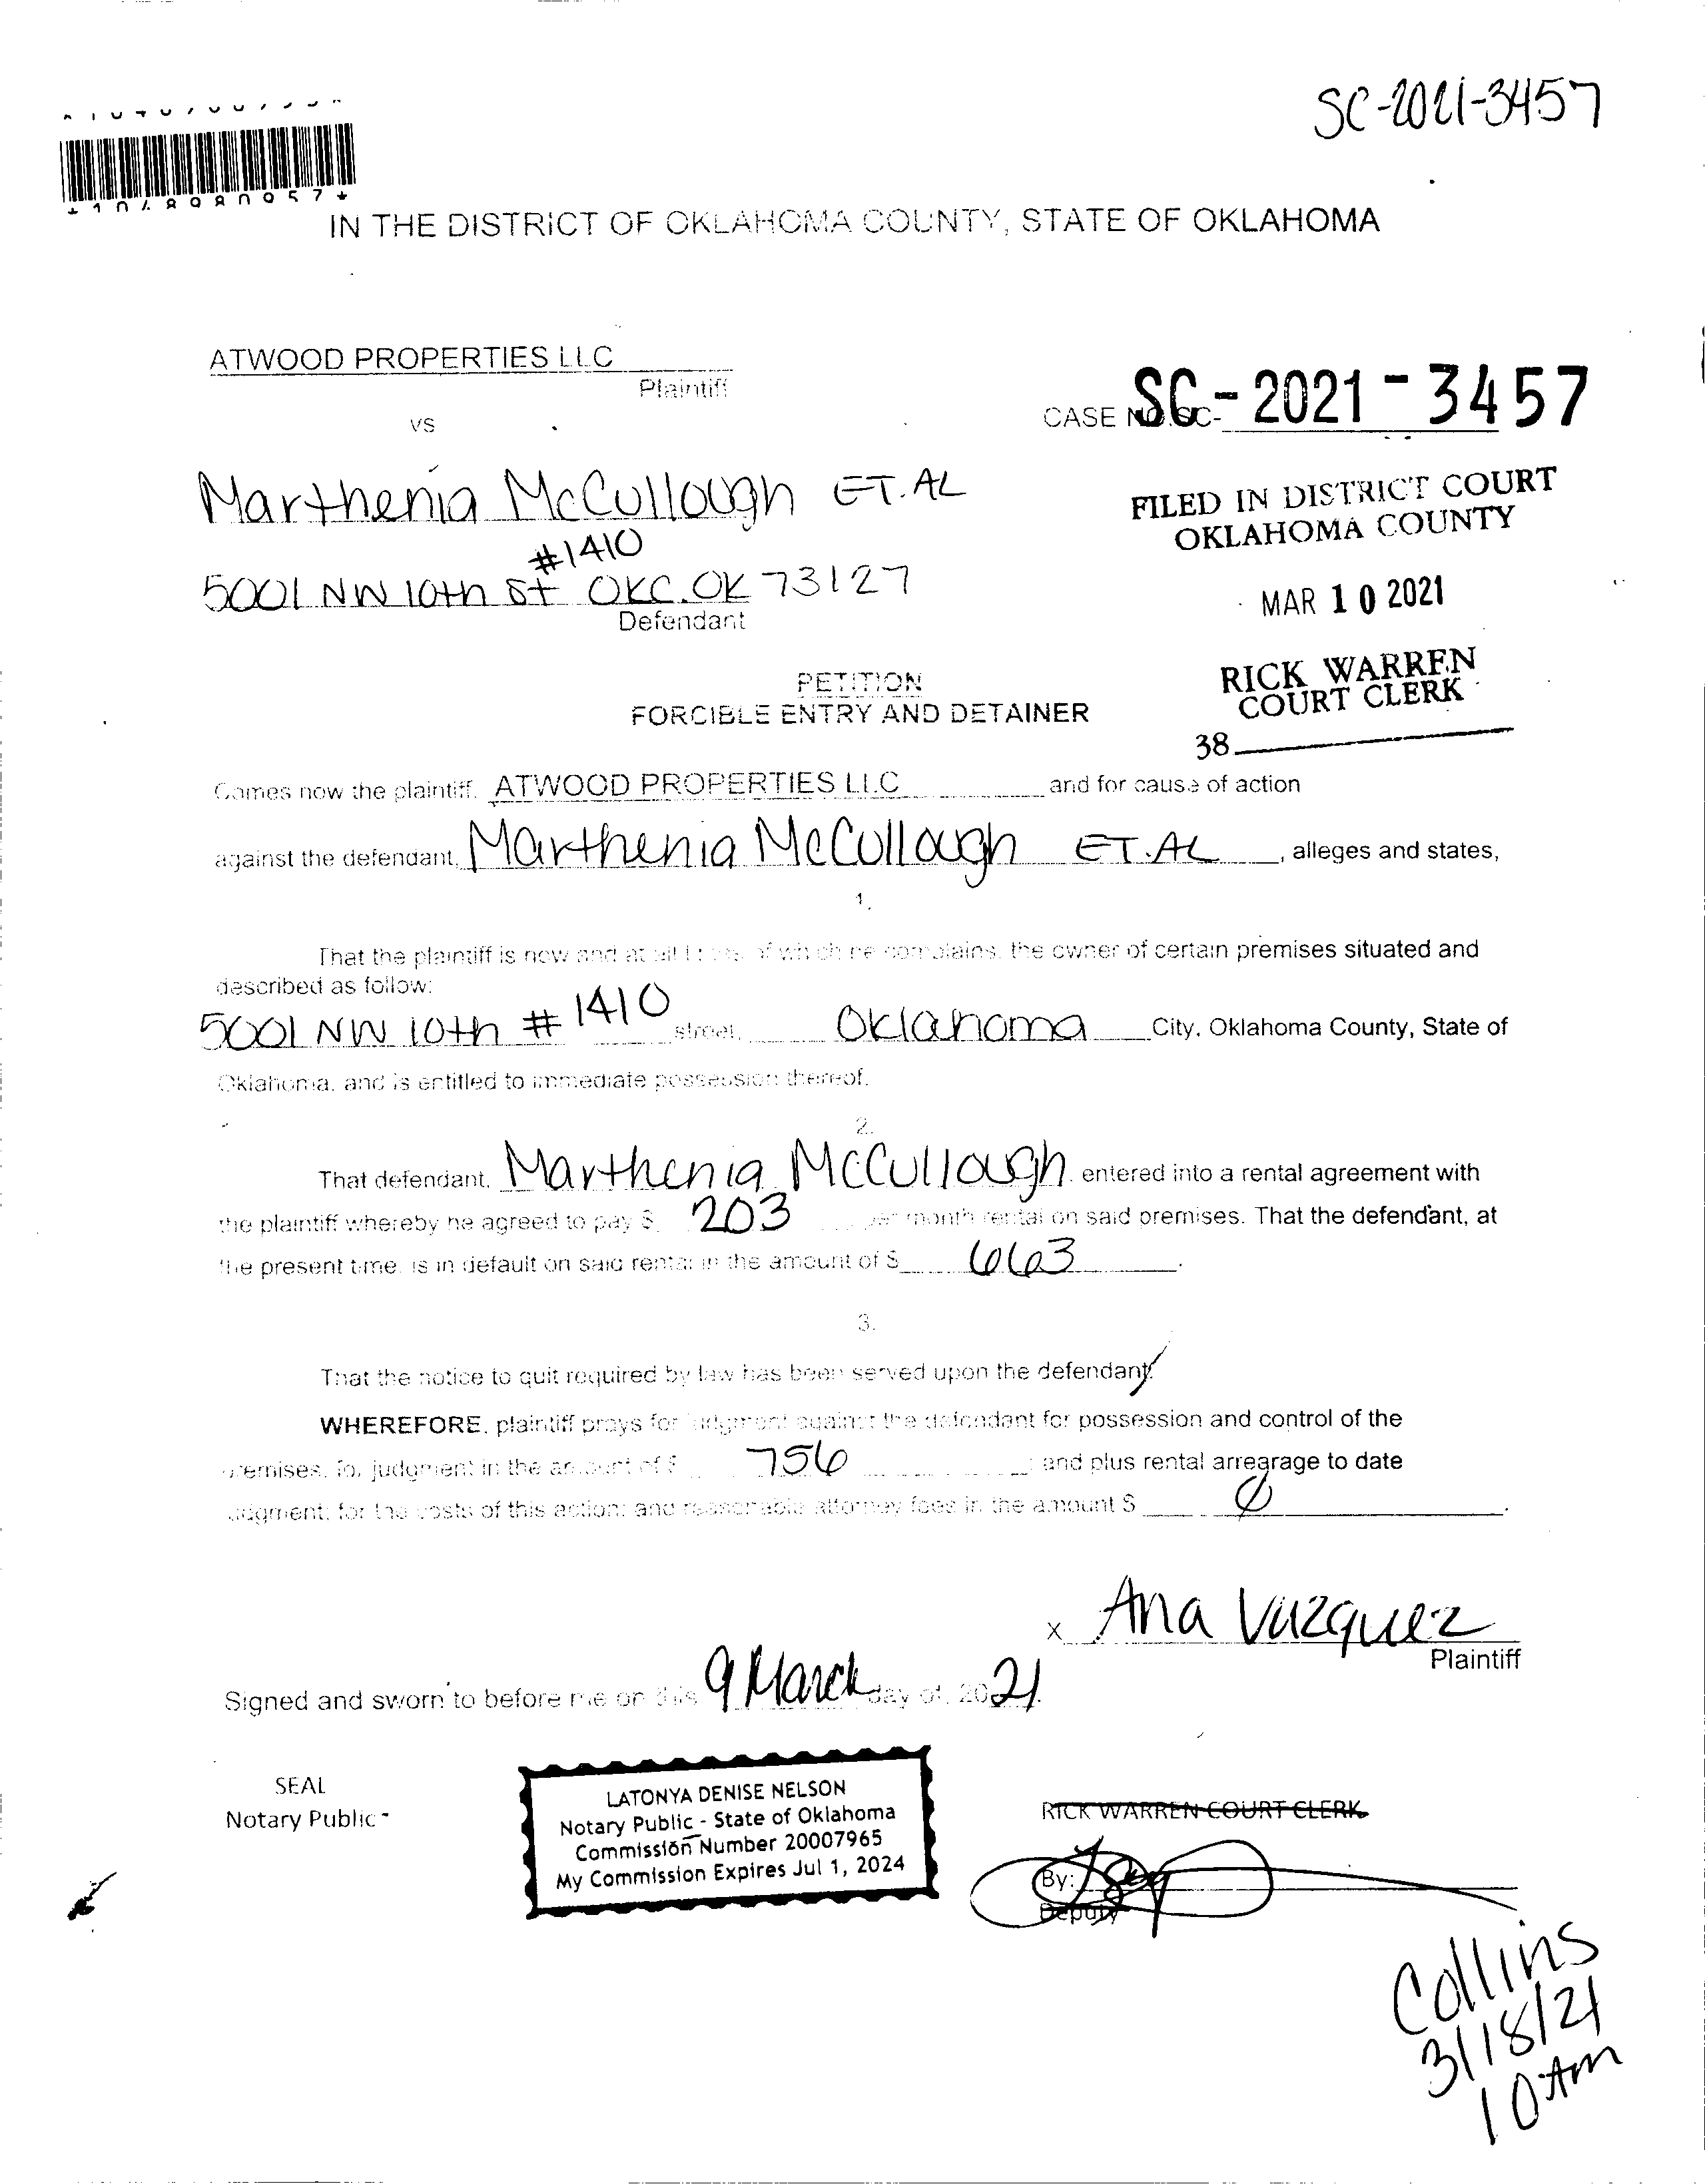 SC-2021-3457
IN THE DISTRICT OF OKLAHOMA COUNTY, STATE OF OKLAHOMA
ATWOOD PROPERTIES LLC
Plaintiff
VS
CASE NO. SC-
SC-2021-3457
Marthenia McCullough ET.AL
#1410
5001 NW 10th St OKC.OK 73127
Defendant
FILED IN DISTRICT COURT
OKLAHOMA COUNTY
MAR 10 2021
RICK WARREN
COURT CLERK
38
PETITION
FORCIBLE ENTRY AND DETAINER
Comes now the plaintiff, ATWOOD PROPERTIES LLC and for cause of action
against the defendant, Marthenia McCullough ET.AL, alleges and states,
1.
That the plaintiff is now and at all of which he complains, the owner of certain premises situated and
described as follow:
5001 NW 10th # 1410 street, Oklahoma City, Oklahoma County, State of
Oklahoma, and is entitled to immediate possession thereof.
2.
That defendant, Marthenia McCullough entered into a rental agreement with
the plaintiff whereby he agreed to pay $ 203 per month rental on said premises. That the defendant, at
the present time, is in default on said rental in the amount of $ 663.
3.
That the notice to quit required by law has been served upon the defendant.
WHEREFORE, plaintiff prays for judgment against the defendant for possession and control of the
premises, for judgment in the amount of $ 756; and plus rental arrearage to date
judgment; for the costs of this action; and reasonable attorney fees in the amount $ Ø.
x Ana Vazquez
Plaintiff
Signed and sworn to before me on this 9 March day of, 2021.
SEAL
Notary Public -
LATONYA DENISE NELSON
Notary Public - State of Oklahoma
Commission Number 20007965
My Commission Expires Jul 1, 2024
RICK WARREN COURT CLERK
By:
Deputy
Collins
3/18/21
10 Am